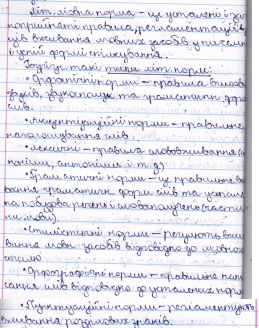 Літ. мовна норма – це усталені і за-
потребовані правила, регламентація
ців вживання мовних засобів у писемн
і усній формі спілкування.
Існують такі типи літ. норм:
• Орфоепічні норми – правильна вимова
звуків, звукосполук та граматичн. форм
слів.
• Акцентуаційні норми – правильне
наголошування слів.
• Лексичні – правила слововживання (си
ноніми, антоніми і т. д.)
• Граматичні норми – це правильне вжи
вання граматичн. форм слів та усталена
побудова речень і словосполучень (частин
ни мови).
• Стилістичні норми – регулюють вжи
вання мовн. засобів відповідно до мовного
стилю
• Орфографічні норми – правильне напи
сання слів відповідно до усталених норм
• Пунктуаційні норми – регламентують
вживання розділових знаків.